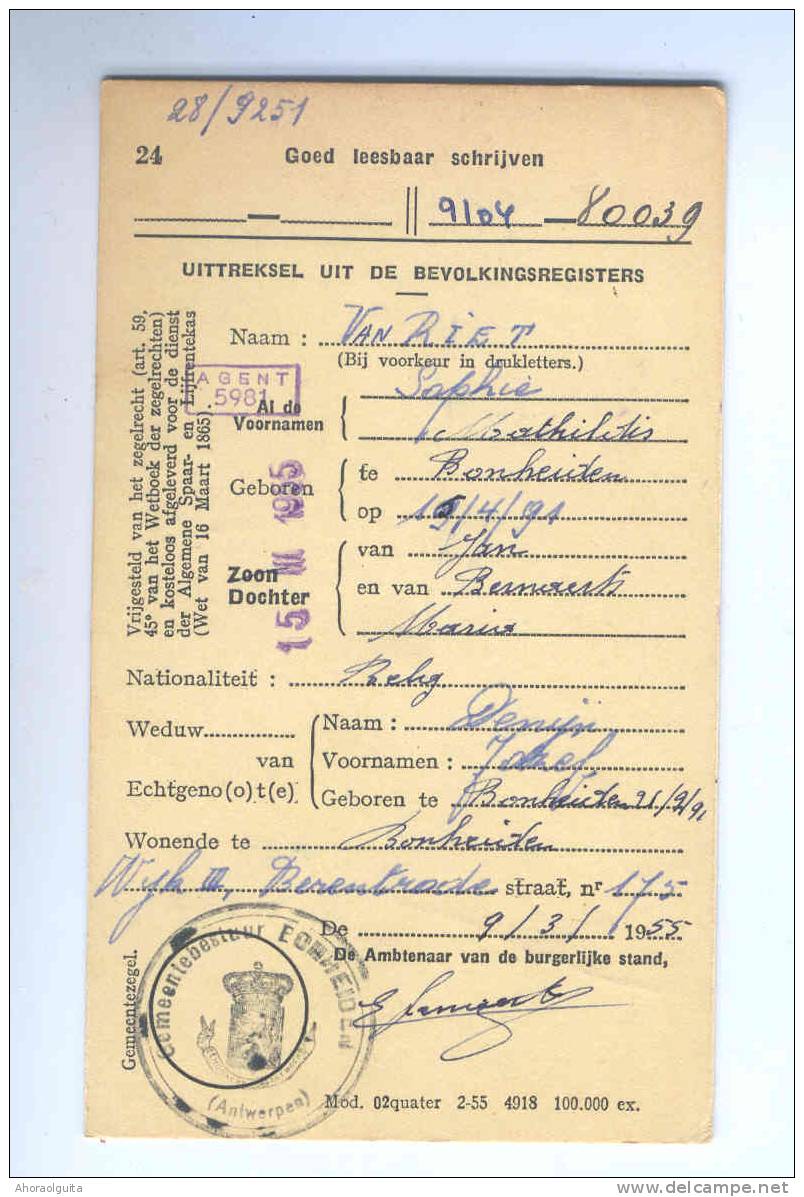 28/9251
24 Goed leesbaar schrijven
— || 9104 — 80039
UITTREKSEL UIT DE BEVOLKINGSREGISTERS
Vrijgesteld van het zegelrecht (art. 59,
45° van het Wetboek der zegelrechten)
en kosteloos afgeleverd voor de dienst
der Algemene Spaar- en Lijfrentekas
(Wet van 16 Maart 1865).
Naam : VAN RIET
(Bij voorkeur in drukletters.)
AGENT
5981
Al de
Voornamen
Sophie
Mathildis
Geboren
te Bonheiden
op /4/91
15 III 1955
Zoon
Dochter
van Jan
en van Bernaerts
Maria
Nationaliteit : Belg
Weduw
van
Echtgeno(o)t(e)
Naam : Denijn
Voornamen : Jozef
Geboren te Bonheiden 21/9/91
Wonende te Bonheiden
Wyk III, Berentrode straat, nr 175
De 9/3/ 1955
De Ambtenaar van de burgerlijke stand,
Gemeentezegel.
Gemeentebestuur BONHEIDEN
(Antwerpen)
Mod. 02quater 2-55 4918 100.000 ex.
Ahoraolguita
delcampe.net